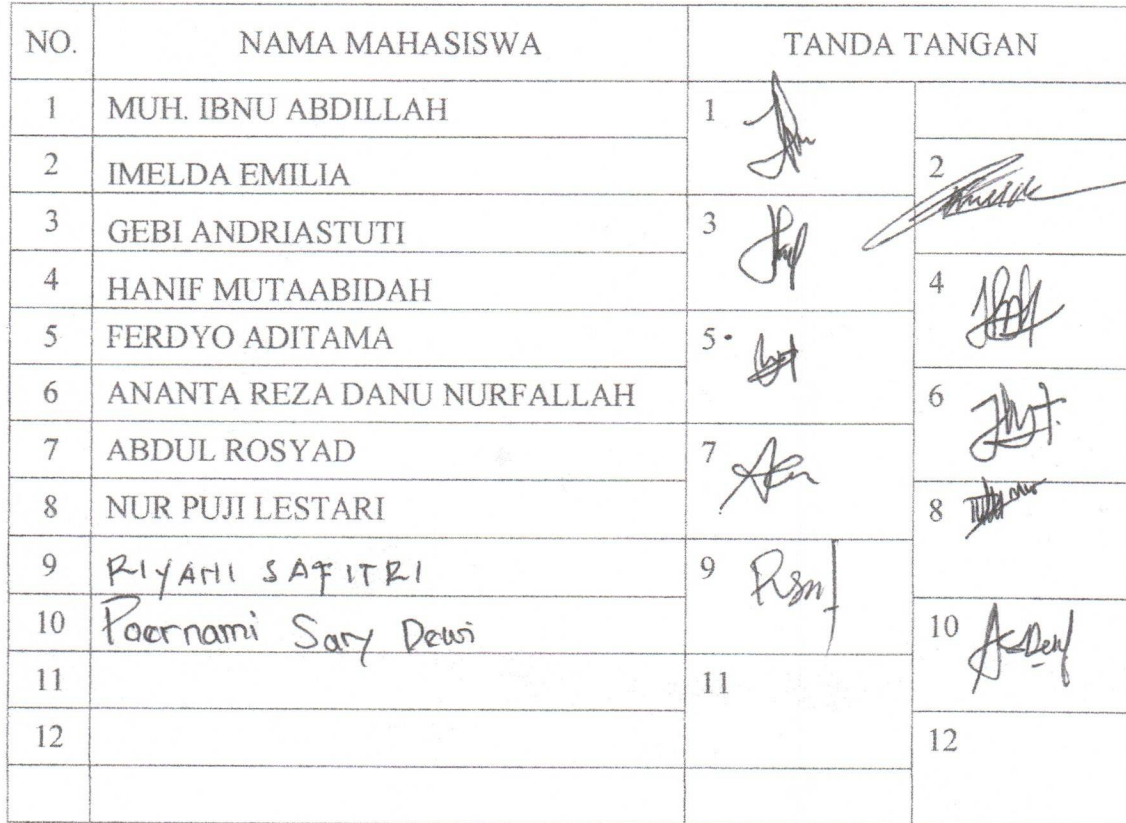 NO. NAMA MAHASISWA TANDA TANGAN
1 MUH. IBNU ABDILLAH 1
2 IMELDA EMILIA 2
3 GEBI ANDRIASTUTI 3
4 HANIF MUTAABIDAH 4
5 FERDYO ADITAMA 5
6 ANANTA REZA DANU NURFALLAH 6
7 ABDUL ROSYAD 7
8 NUR PUJI LESTARI 8
9 RIYAHI SAFITRI 9
10 Poernami Sary Dewi 10
11 11
12 12